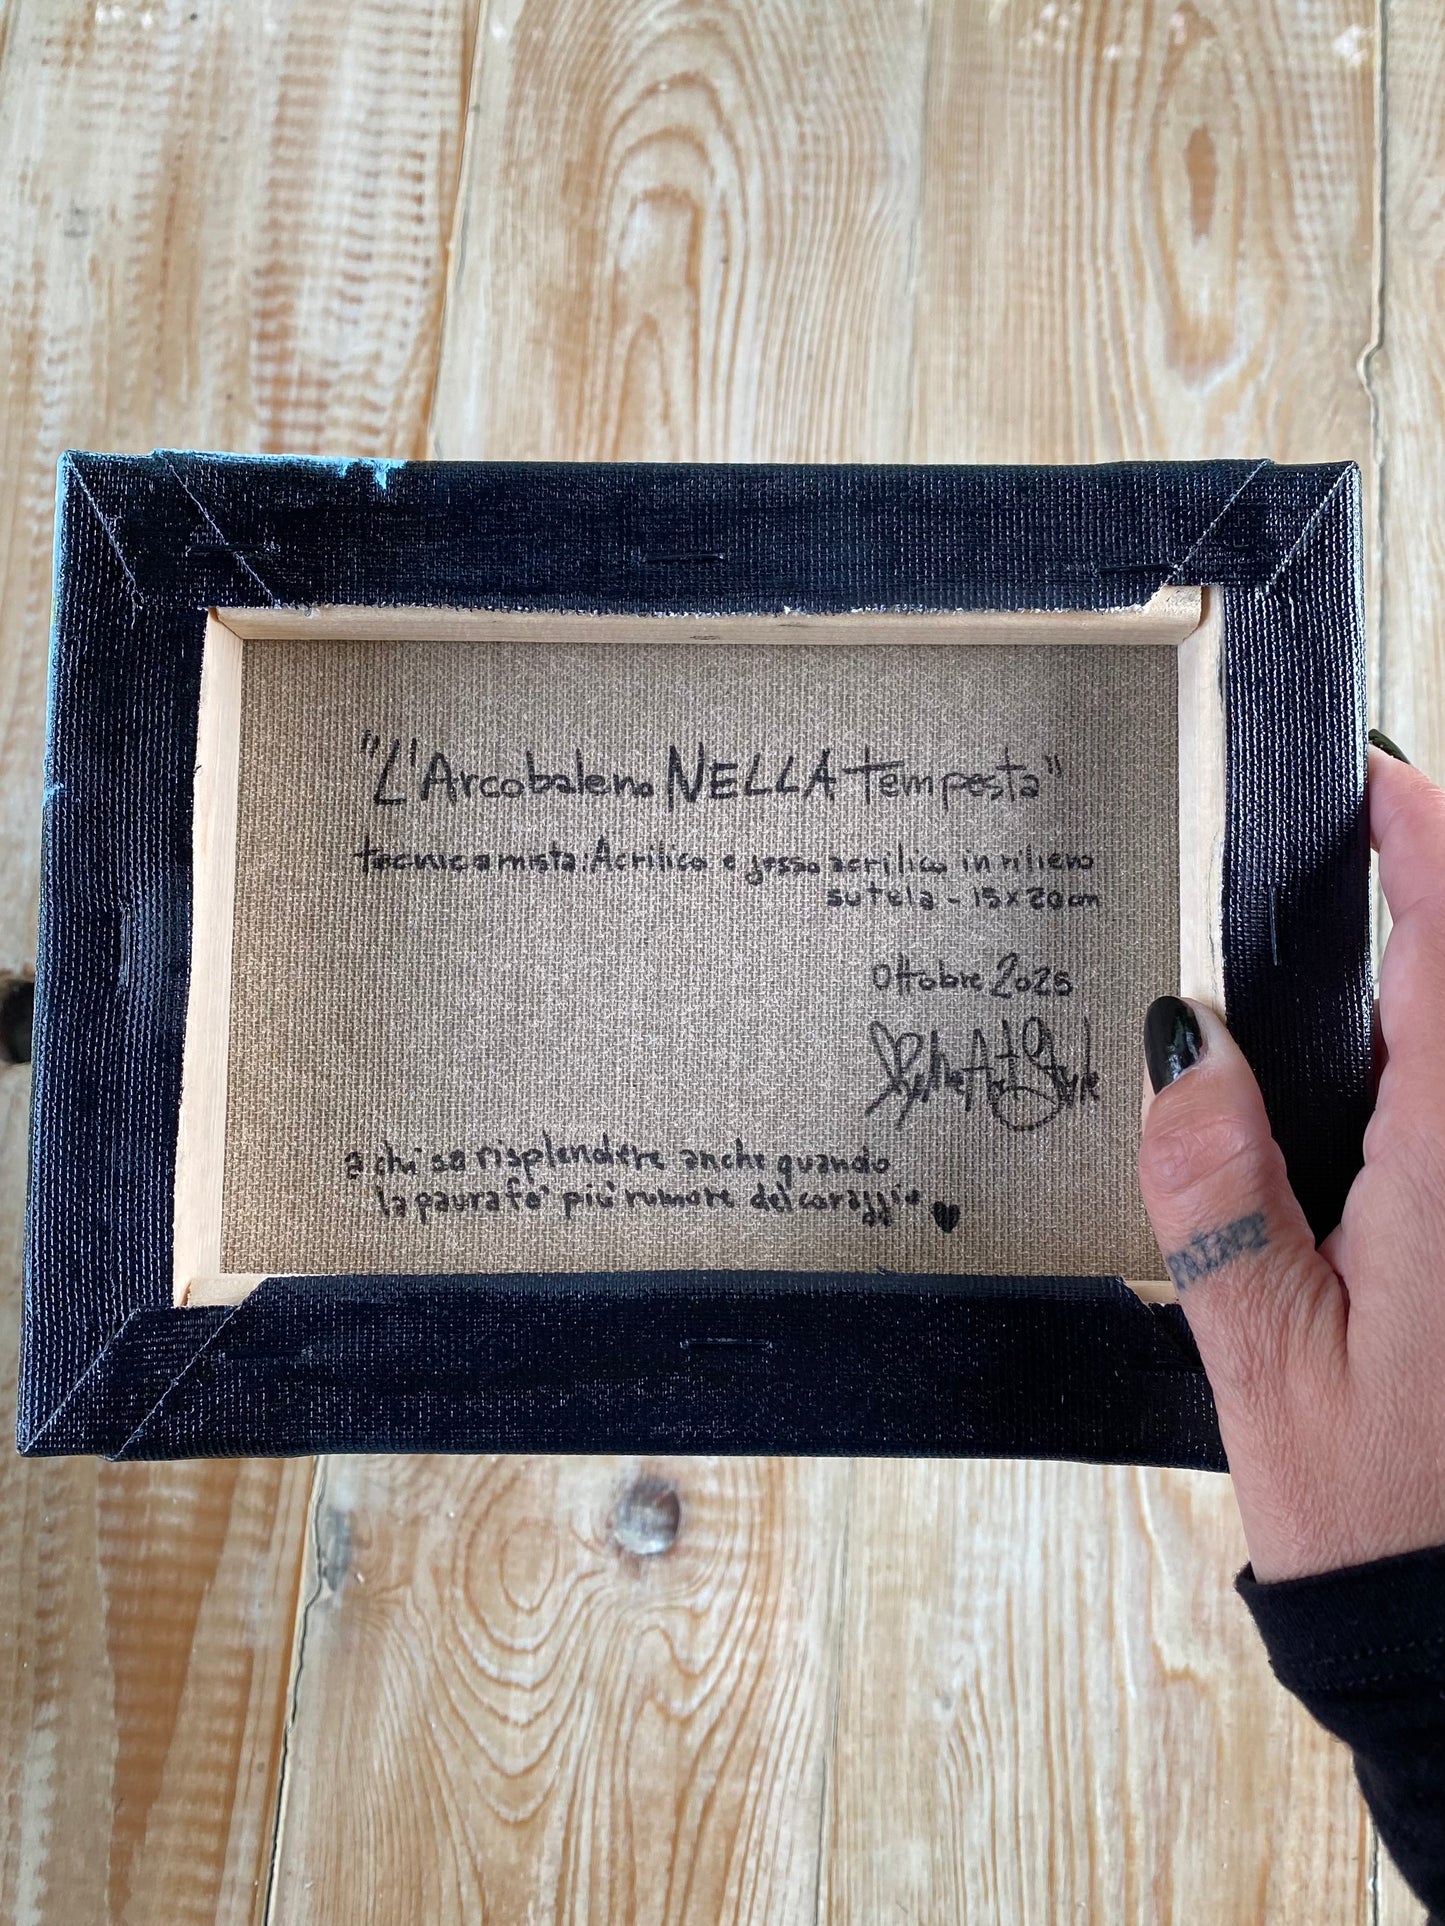 "L'Arcobaleno NELLA tempesta"
tecnica mista: Acrilico e gesso acrilico in rilievo
su tela - 15x20cm
Ottobre 2025
a chi sa risplendere anche quando
la paura fa più rumore del coraggio ♥